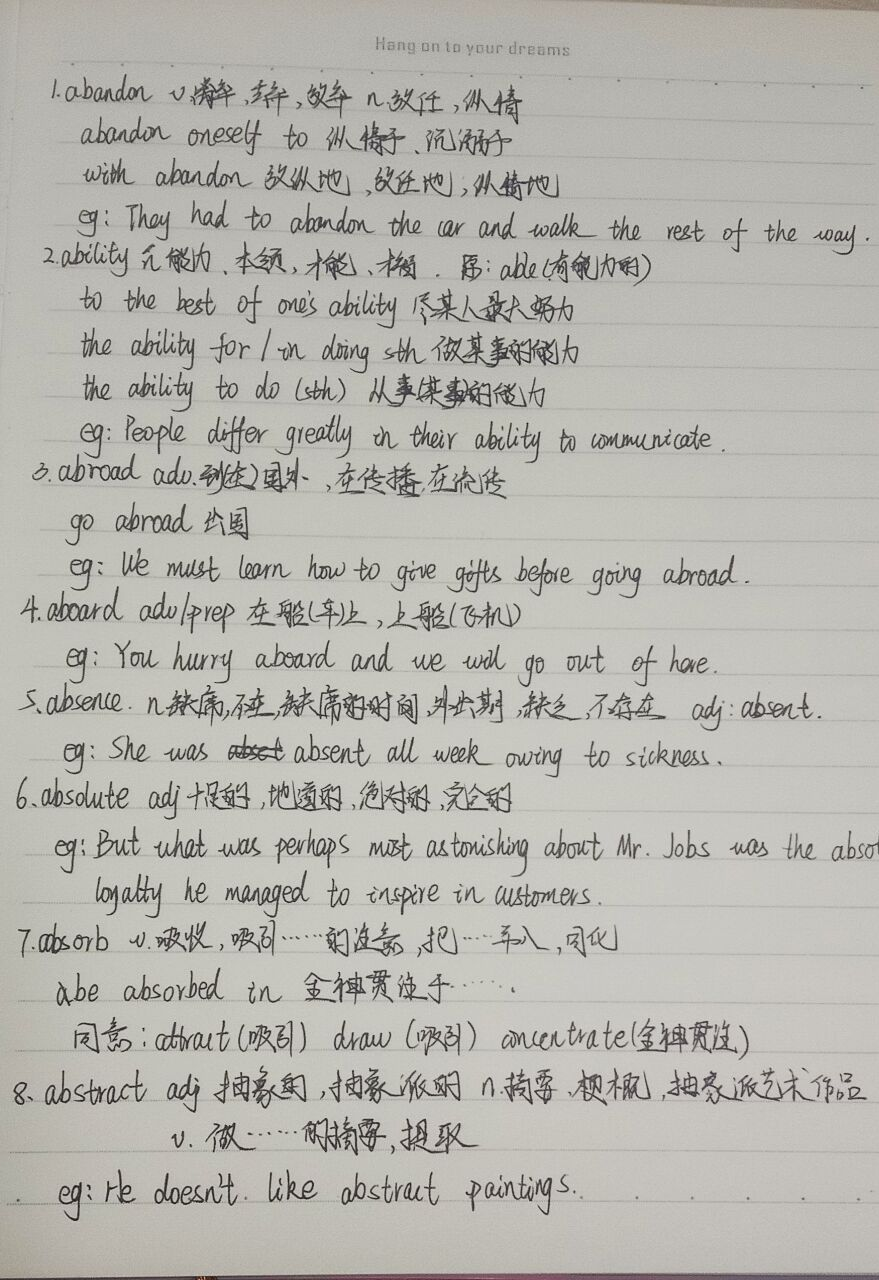 Hang on to your dreams
1.abandon v.离弃,丢弃,放弃 n.放任,纵情
abandon oneself to 纵情于、沉溺于
with abandon 放纵地,放任地,纵情地
eg: They had to abandon the car and walk the rest of the way.
2.ability n.能力、本领,才能、才智. 原: able(有能力的)
to the best of one's ability 尽某人最大努力
the ability for / in doing sth 做某事的能力
the ability to do (sth) 从事(某事)的能力
eg: People differ greatly in their ability to communicate.
3.abroad adv.到(在)国外,在传播,在流传
go abroad 出国
eg: We must learn how to give gifts before going abroad.
4.aboard adv/prep 在船(车)上,上船(飞机)
eg: You hurry aboard and we will go out of here.
5.absence. n.缺席,不在,缺席的时间,外出期,缺乏,不存在 adj: absent.
eg: She was absent all week owing to sickness.
6.absolute adj 十足的,地道的,绝对的,完全的
eg: But what was perhaps most astonishing about Mr. Jobs was the absol
loyalty he managed to inspire in customers.
7.absorb v.吸收,吸引……的注意,把……并入,同化
be absorbed in 全神贯注于……
同意: attract(吸引) draw (吸引) concentrate(全神贯注)
8、abstract adj 抽象的,抽象派的 n.摘要、梗概,抽象派艺术作品
v. 做……的摘要,提取
eg: He doesn't like abstract paintings.